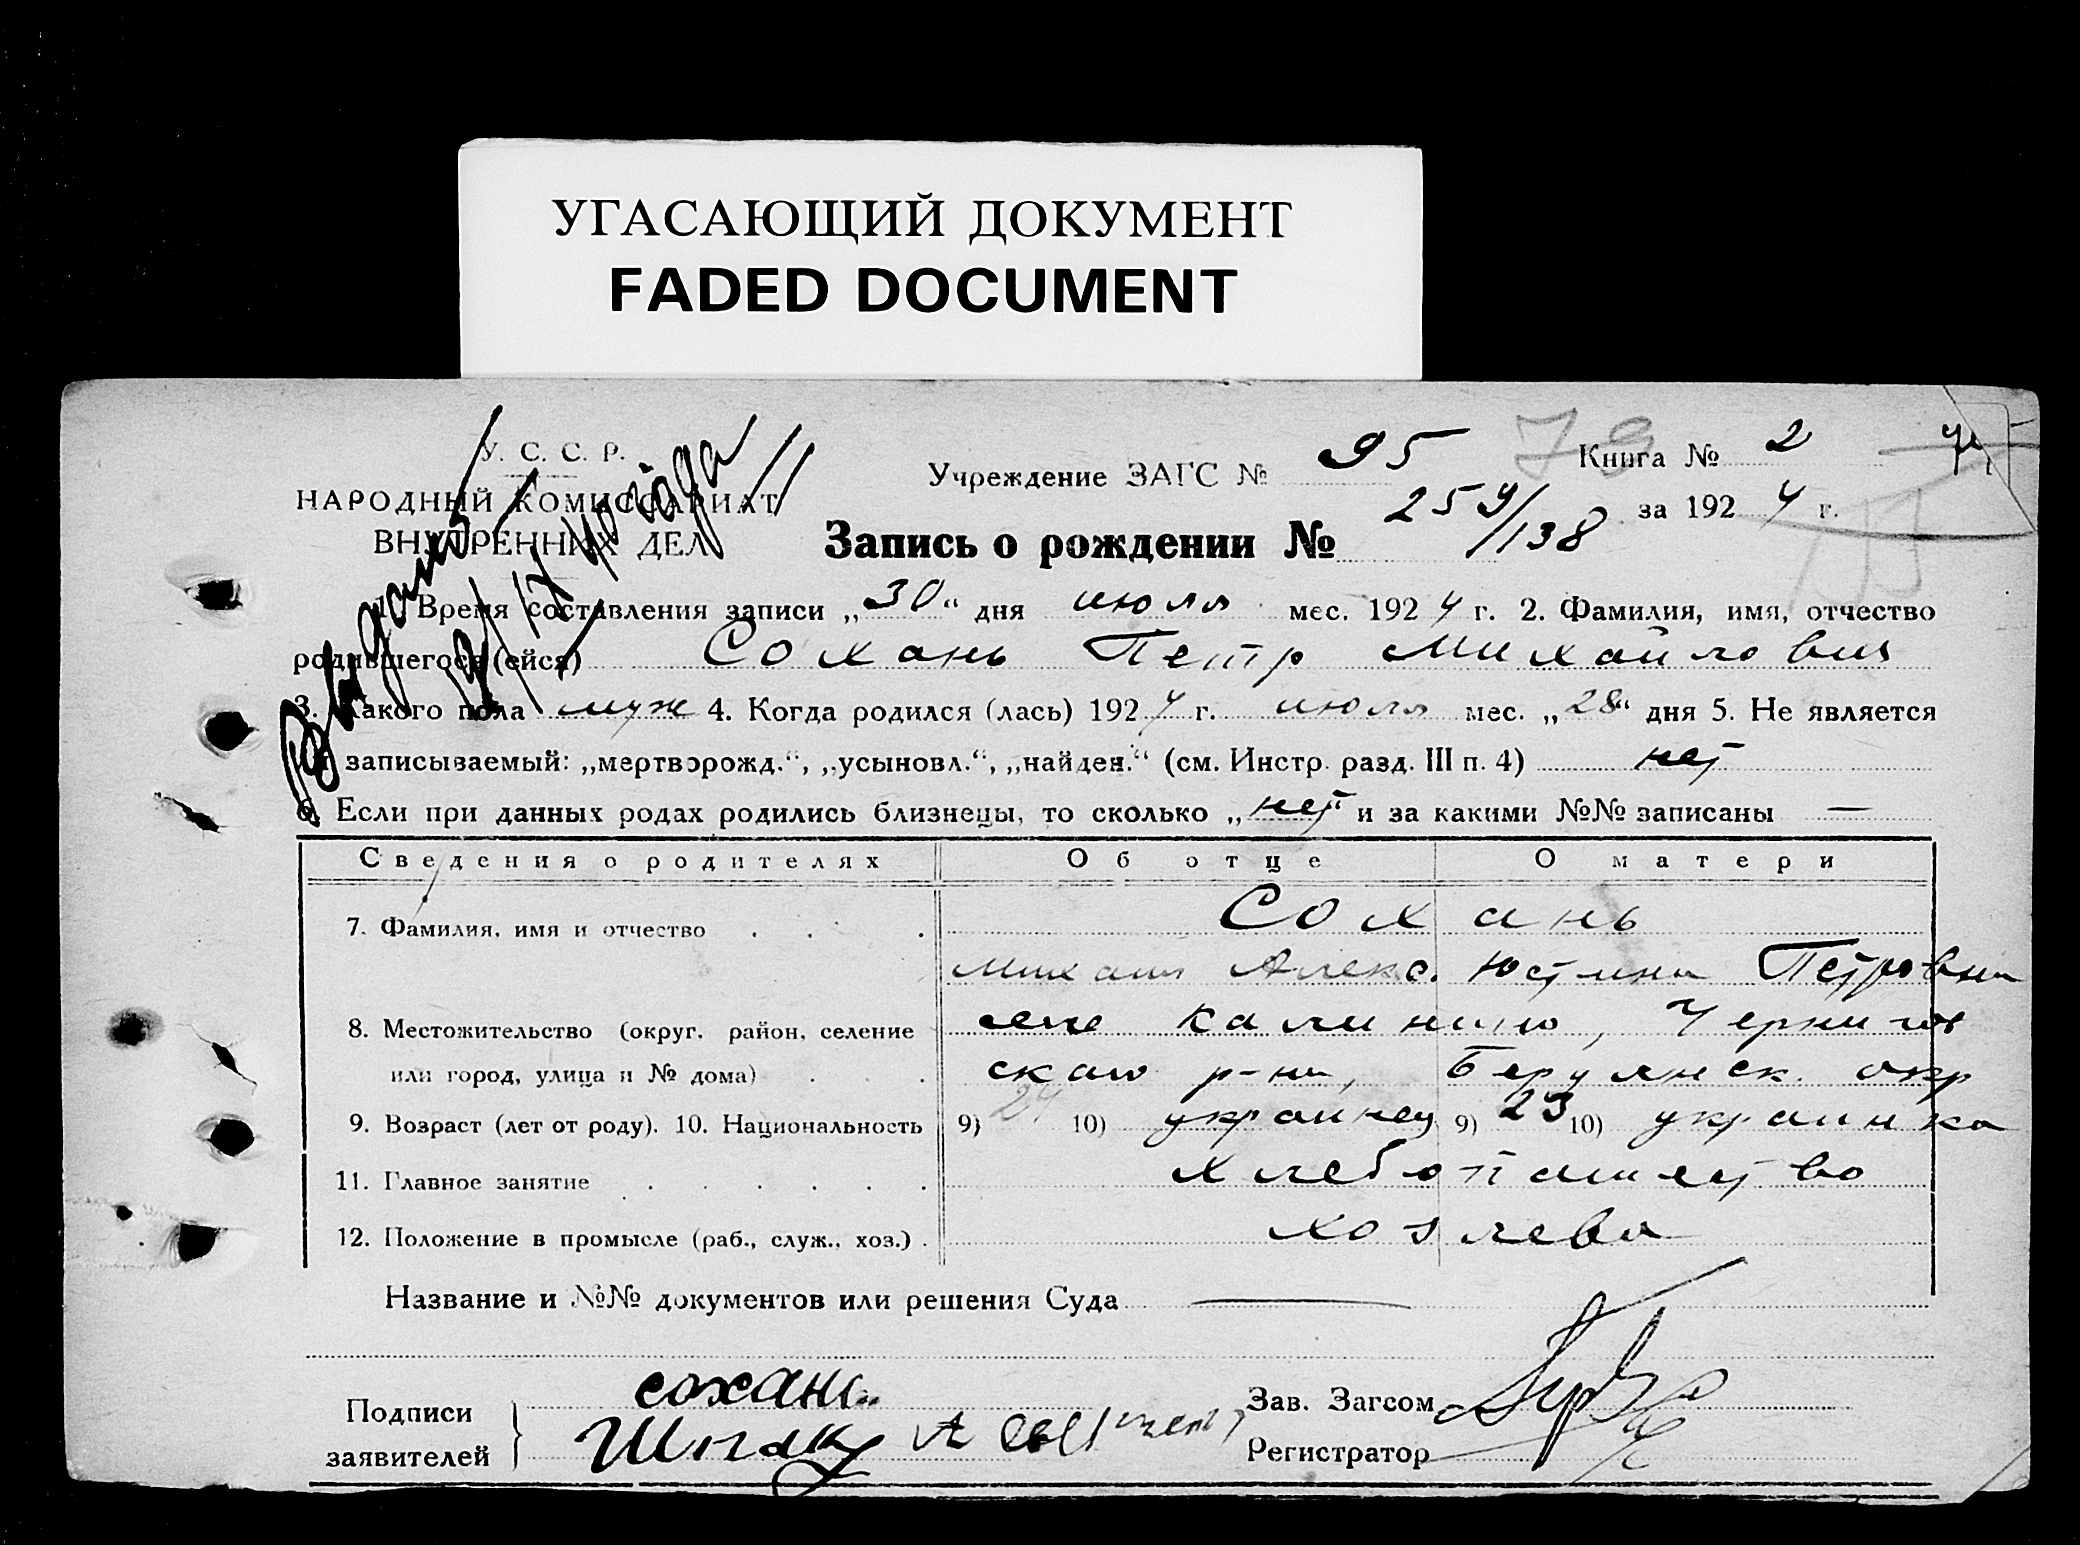 УГАСАЮЩИЙ ДОКУМЕНТ
FADED DOCUMENT
У. С. С. Р.
НАРОДНЫЙ КОМИССАРИАТ
ВНУТРЕННИХ ДЕЛ
Учреждение ЗАГС № 95
79
Книга № 2
за 1924 г.
Запись о рождении № 254/138
1. Время составления записи „30“ дня июля мес. 1924 г. 2. Фамилия, имя, отчество
родившегося (ейся) Сохань Петр Михайлович
3. Какого пола муж 4. Когда родился (лась) 1924 г. июля мес. „28“ дня 5. Не является
записываемый: „мертворожд.“, „усыновл.“, „найден.“ (см. Инстр. разд. III п. 4) нет
6. Если при данных родах родились близнецы, то сколько „нет“ и за какими №№ записаны —
Сведения о родителях Об отце О матери
7. Фамилия, имя и отчество Сохань
Михаил Алекс. Юстина Петровна
8. Местожительство (округ, район, селение селе Калинино, Чернигов
или город, улица и № дома) ского р-на, Бердянск. окр
9. Возраст (лет от роду). 10. Национальность 9) 24 10) украинец 9) 23 10) украинка
11. Главное занятие хлебопашество
12. Положение в промысле (раб., служ., хоз.) хозяева
Название и №№ документов или решения Суда —
Подписи сохань Зав. Загсом
заявителей Шпак Регистратор